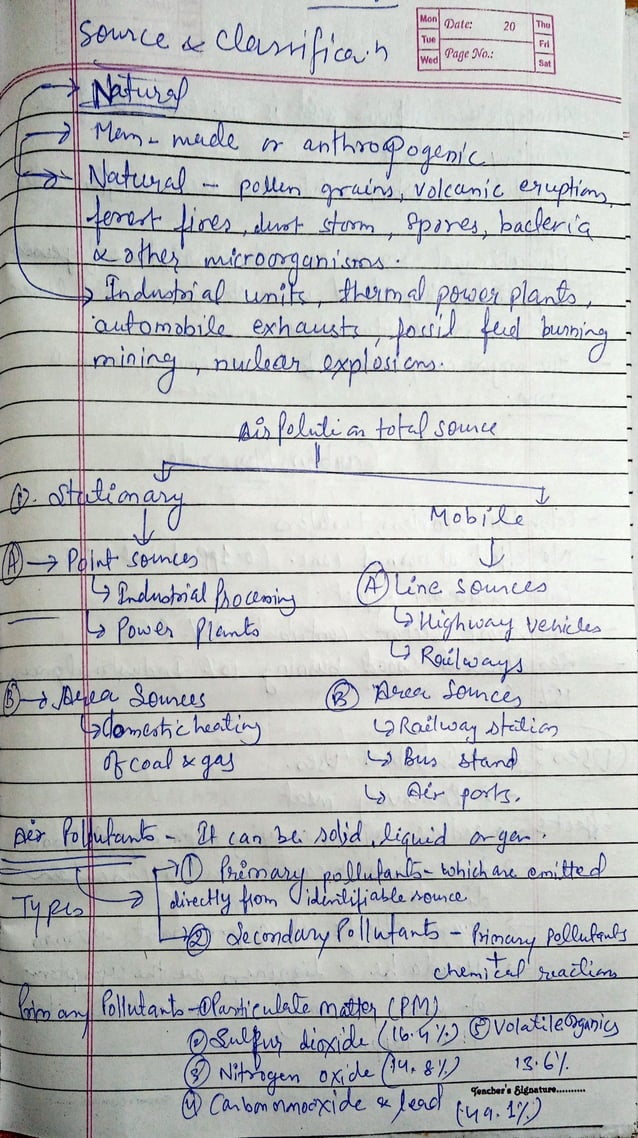 Mon Date: 20 Thu
Tue Fri
Wed Page No.: Sat
Source & Classificain
Natural
Man-made or anthropogenic
Natural - pollen grains, volcanic eruption,
forest fires, dust storm, spores, bacteria
& other microorganisms.
Industrial units, thermal power plants,
automobile exhausts, fossil fuel burning
mining, nuclear explosions.
Air Polution total source
Stationary
Mobile
A → Point sources
↳ Industrial Processing
↳ Power Plants
A Line Sources
↳ Highway vehicles
↳ Railways
B → Area Sources
↳ domestic heating
of coal & gas
B Area Sources
↳ Railway station
↳ Bus stand
↳ Air ports.
Air Pollutants - It can be solid, liquid or gas.
Types
① Primary pollutants - which are emitted
directly from identifiable source
② Secondary Pollutants - Primary pollutants
+
chemical reaction
Primary Pollutants - ① Particulate matter (PM)
② Sulfur dioxide (16.4%) ⑤ Volatile Organics
13.6%
③ Nitrogen oxide (14.8%)
④ Carbonmonooxide & lead (49.1%)
Teacher's Signature..........